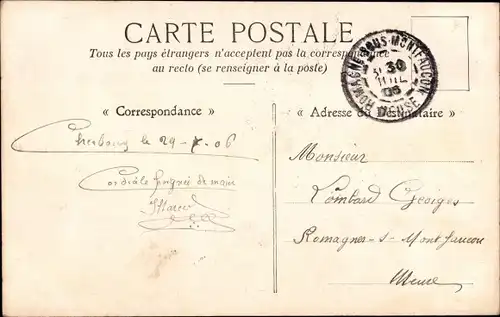 CARTE POSTALE
Tous les pays étrangers n'acceptent pas la correspondance
au recto (se renseigner à la poste)
ROMAGNE-SOUS-MONTFAUCON
30
JUIL
06
MEUSE
« Correspondance »
« Adresse du Destinataire »
Cherbourg le 29-7-06
Cordiale poignée de main
Marcel
Monsieur
Lombard Georges
Romagne-s-Montfaucon
Meuse